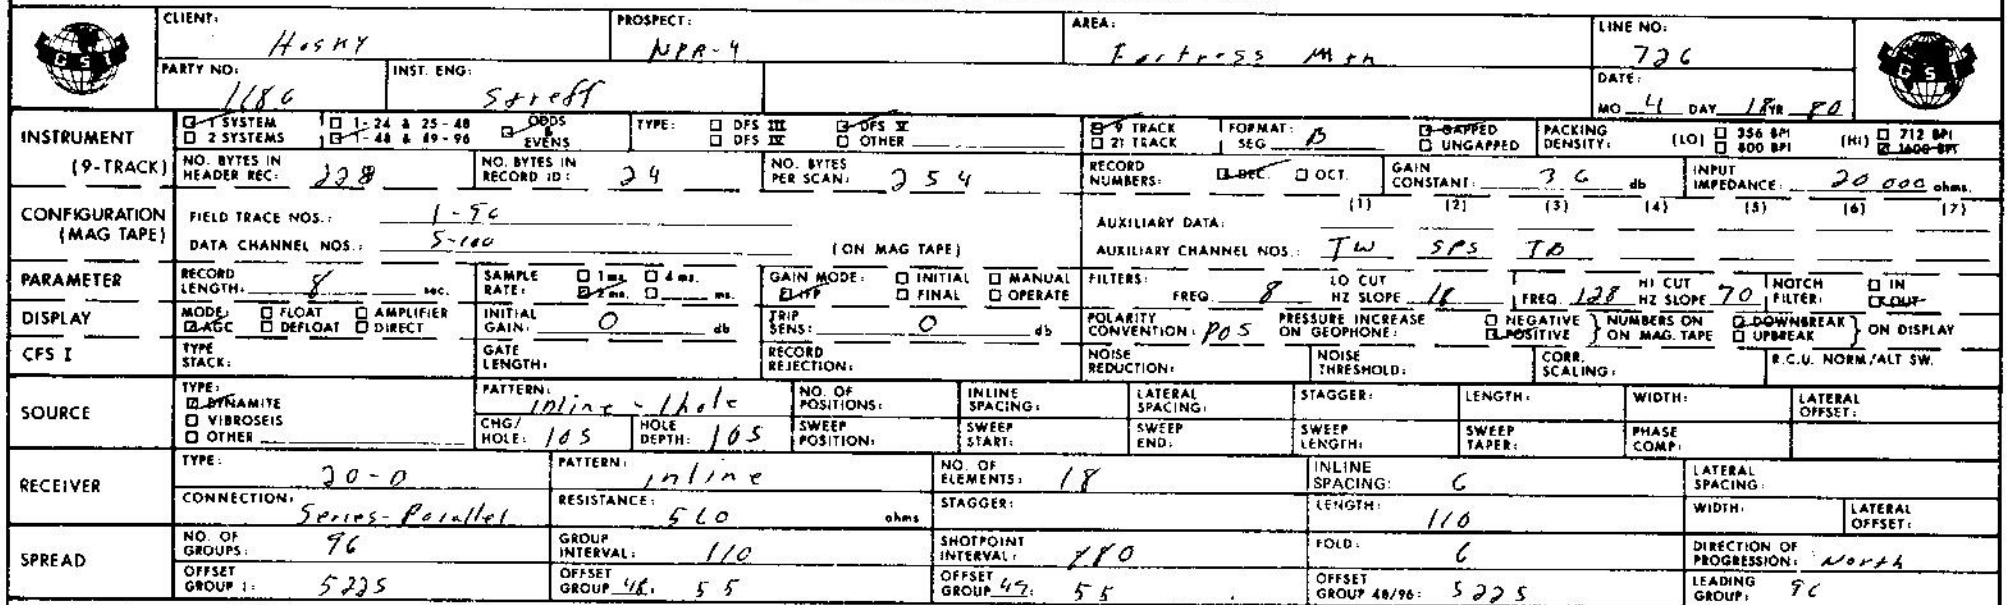 CLIENT: Husky PROSPECT: NPR-4 AREA: Fortress Mtn LINE NO: 726
GSI GSI
PARTY NO: 1186 INST. ENG: Streff DATE: MO 4 DAY 18 YR 80
INSTRUMENT 1 SYSTEM 1-24 & 25-48 ODDS & EVENS TYPE: DFS III DFS V 9 TRACK FORMAT: SEG B GAPPED PACKING DENSITY: (LO) 356 BPI (HI) 712 BPI
2 SYSTEMS 1-48 & 49-96 DFS IV OTHER 21 TRACK UNGAPPED 800 BPI 1600 BPI
(9-TRACK) NO. BYTES IN HEADER REC: 228 NO. BYTES IN RECORD ID: 24 NO. BYTES PER SCAN: 254 RECORD NUMBERS: DEC. OCT. GAIN CONSTANT: 36 db INPUT IMPEDANCE: 20 000 ohms.
CONFIGURATION (MAG TAPE) FIELD TRACE NOS.: 1-96 AUXILIARY DATA: (1) (2) (3) (4) (5) (6) (7)
DATA CHANNEL NOS.: 5-100 (ON MAG TAPE) AUXILIARY CHANNEL NOS.: TW SPS TB
PARAMETER RECORD LENGTH: 8 sec. SAMPLE RATE: 1 ms. 4 ms. 2 ms. ms. GAIN MODE: INITIAL MANUAL IFP FINAL OPERATE FILTERS: FREQ. 8 LO CUT HZ SLOPE 18 FREQ. 128 HI CUT HZ SLOPE 70 NOTCH FILTER: IN OUT
DISPLAY MODE: FLOAT AMPLIFIER AGC DEFLOAT DIRECT INITIAL GAIN: 0 db TRIP SENS: 0 db POLARITY CONVENTION: POS PRESSURE INCREASE ON GEOPHONE: NEGATIVE POSITIVE NUMBERS ON ON MAG. TAPE DOWNBREAK UPBREAK ON DISPLAY
CFS I TYPE STACK: GATE LENGTH: RECORD REJECTION: NOISE REDUCTION: NOISE THRESHOLD: CORR. SCALING: R.C.U. NORM/ALT SW.
SOURCE TYPE: DYNAMITE VIBROSEIS OTHER PATTERN: inline - 1 hole NO. OF POSITIONS: INLINE SPACING: LATERAL SPACING: STAGGER: LENGTH: WIDTH: LATERAL OFFSET:
CHG/HOLE: 105 HOLE DEPTH: 105 SWEEP POSITION: SWEEP START: SWEEP END: SWEEP LENGTH: SWEEP TAPER: PHASE COMP:
RECEIVER TYPE: 20-D PATTERN: inline NO. OF ELEMENTS: 18 INLINE SPACING: 6 LATERAL SPACING:
CONNECTION: Series-Parallel RESISTANCE: 560 ohms STAGGER: LENGTH: 110 WIDTH: LATERAL OFFSET:
SPREAD NO. OF GROUPS: 96 GROUP INTERVAL: 110 SHOTPOINT INTERVAL: 880 FOLD: 6 DIRECTION OF PROGRESSION: North
OFFSET GROUP 1: 5225 OFFSET GROUP 48: 55 OFFSET GROUP 49: 55 OFFSET GROUP 48/96: 5225 LEADING GROUP: 96